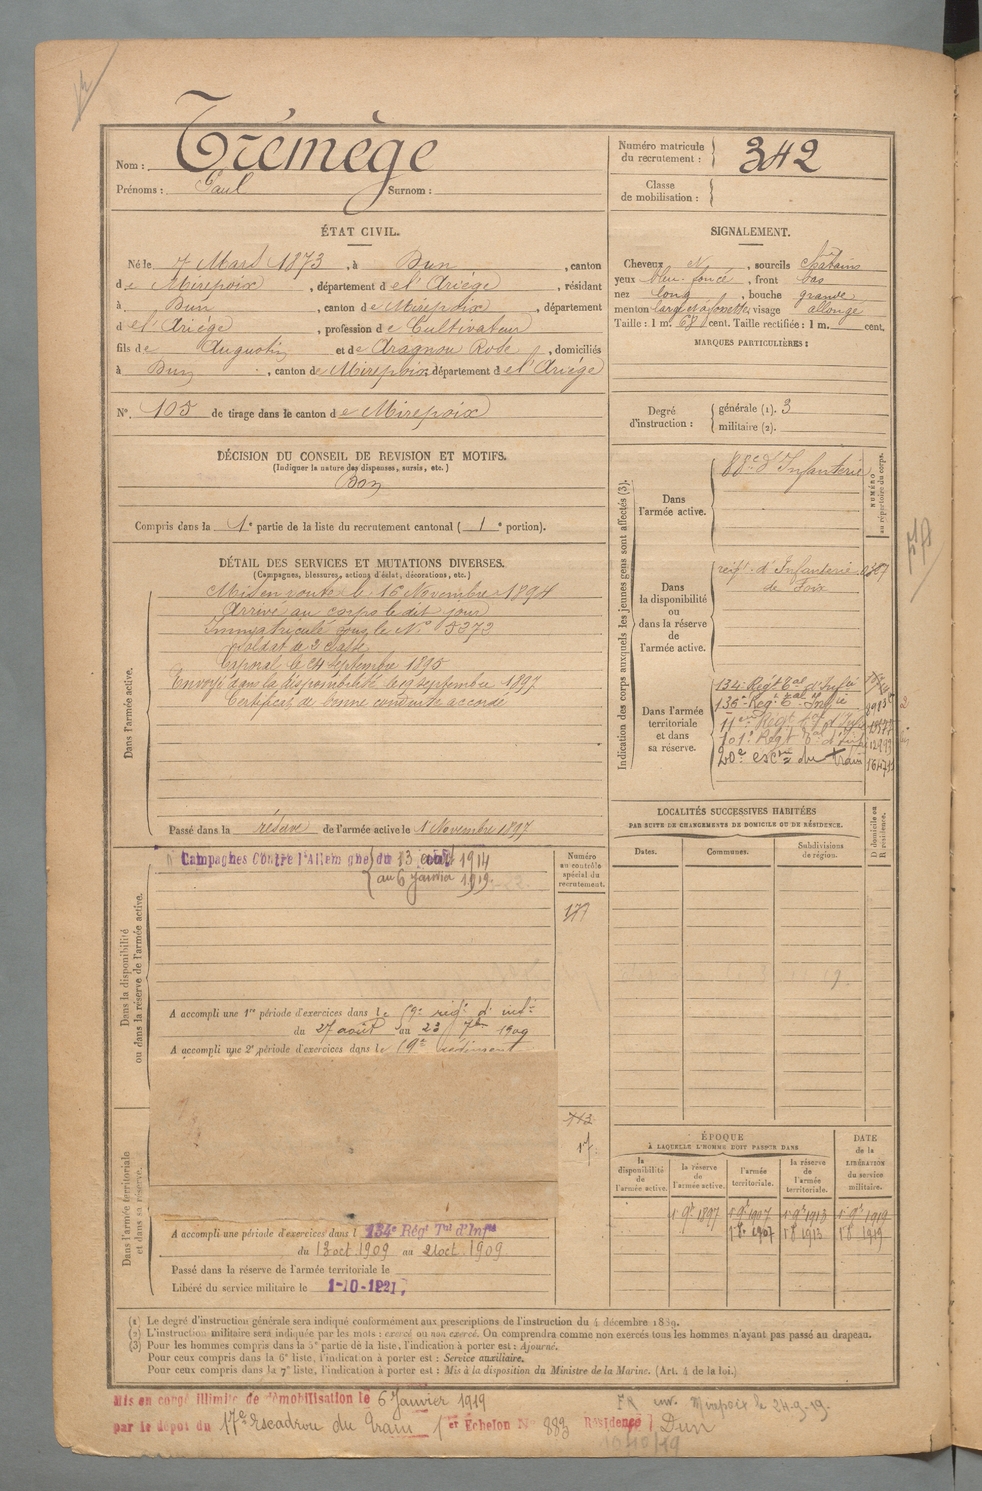 Nom : Trémège
Prénoms : Paul Surnom :
Numéro matricule du recrutement : 342
Classe de mobilisation :
ÉTAT CIVIL.
Né le 7 Mars 1873, à Dun, canton
de Mirepoix, département de l'Ariège, résidant
à Dun, canton de Mirepoix, département
de l'Ariège, profession de Cultivateur
fils de Augustin et de Aragnou Rose, domiciliés
à Dun, canton de Mirepoix département de l'Ariége
N°. 105 de tirage dans le canton de Mirepoix
DÉCISION DU CONSEIL DE REVISION ET MOTIFS.
(Indiquer la nature des dispenses, sursis, etc.)
Bon
Compris dans la 1e partie de la liste du recrutement cantonal (1e portion).
DÉTAIL DES SERVICES ET MUTATIONS DIVERSES.
(Campagnes, blessures, actions d'éclat, décorations, etc.)
Dans l'armée active.
Mis en route le 16 Novembre 1894
Arrivé au corps le dit jour
Immatriculé sous le N° 5373
Soldat de 2e classe
Caporal le 24 septembre 1895
Envoyé dans la disponibilité le 19 septembre 1897
Certificat de bonne conduite accordé
Passé dans la réserve de l'armée active le 1er Novembre 1897
Dans la disponibilité ou dans la réserve de l'armée active.
Campagnes Contre l'Allemagne du 13 août 1914
au 6 Janvier 1919
Numéro au contrôle spécial du recrutement.
A accompli une 1re période d'exercices dans le
du 27 août au 23 7bre
A accompli une 2e période d'exercices dans le
Dans l'armée territoriale et dans sa réserve.
113
17
A accompli une période d'exercices dans l 134e Régt Tal d'Infie
du 13 oct 1909 au 21 oct 1909
Passé dans la réserve de l'armée territoriale le
Libéré du service militaire le 1-10-1921
SIGNALEMENT.
Cheveux N, sourcils Chatains
yeux bleu foncé, front bas
nez long, bouche grande
menton large et à fossette, visage allongé
Taille : 1 m. 67 cent. Taille rectifiée : 1 m. cent.
MARQUES PARTICULIÈRES :
Degré d'instruction : générale (1). 3
militaire (2).
Indication des corps auxquels les jeunes gens sont affectés (3).
NUMÉRO au répertoire du corps.
Dans l'armée active. 88e d'Infanterie
Dans la disponibilité ou dans la réserve de l'armée active. régt d'Infanterie de Foix
Dans l'armée territoriale et dans sa réserve.
134e Régt Tal d'Infie
136e Régt Tal d'Infie
101e Régt Tal d'Infie
20e escon du train
LOCALITÉS SUCCESSIVES HABITÉES
PAR SUITE DE CHANGEMENTS DE DOMICILE OU DE RÉSIDENCE.
Dates. Communes. Subdivisions de région. D domicile ou R résidence.
ÉPOQUE
À LAQUELLE L'HOMME DOIT PASSER DANS
DATE de la LIBÉRATION du service militaire.
la disponibilité de l'armée active. la réserve de l'armée active. l'armée territoriale. la réserve de l'armée territoriale.
1er 9bre 1897 1er 9bre 1907 1er 9bre 1913 1er 9bre 1919
1er 8bre 1907 1er 8bre 1913 1er 8bre 1919
(1) Le degré d'instruction générale sera indiqué conformément aux prescriptions de l'instruction du 4 décembre 1889.
(2) L'instruction militaire sera indiquée par les mots : exercé ou non exercé. On comprendra comme non exercés tous les hommes n'ayant pas passé au drapeau.
(3) Pour les hommes compris dans la 5e partie de la liste, l'indication à porter est : Ajourné.
Pour ceux compris dans la 6e liste, l'indication à porter est : Service auxiliaire.
Pour ceux compris dans la 7e liste, l'indication à porter est : Mis à la disposition du Ministre de la Marine. (Art. 4 de la loi.)
Mis en congé illimité de démobilisation le 6 Janvier 1919
par le dépôt du 17e Escadron du Train 1er Echelon N° 883 Résidence Dun
Mirepoix le 24-9-19.